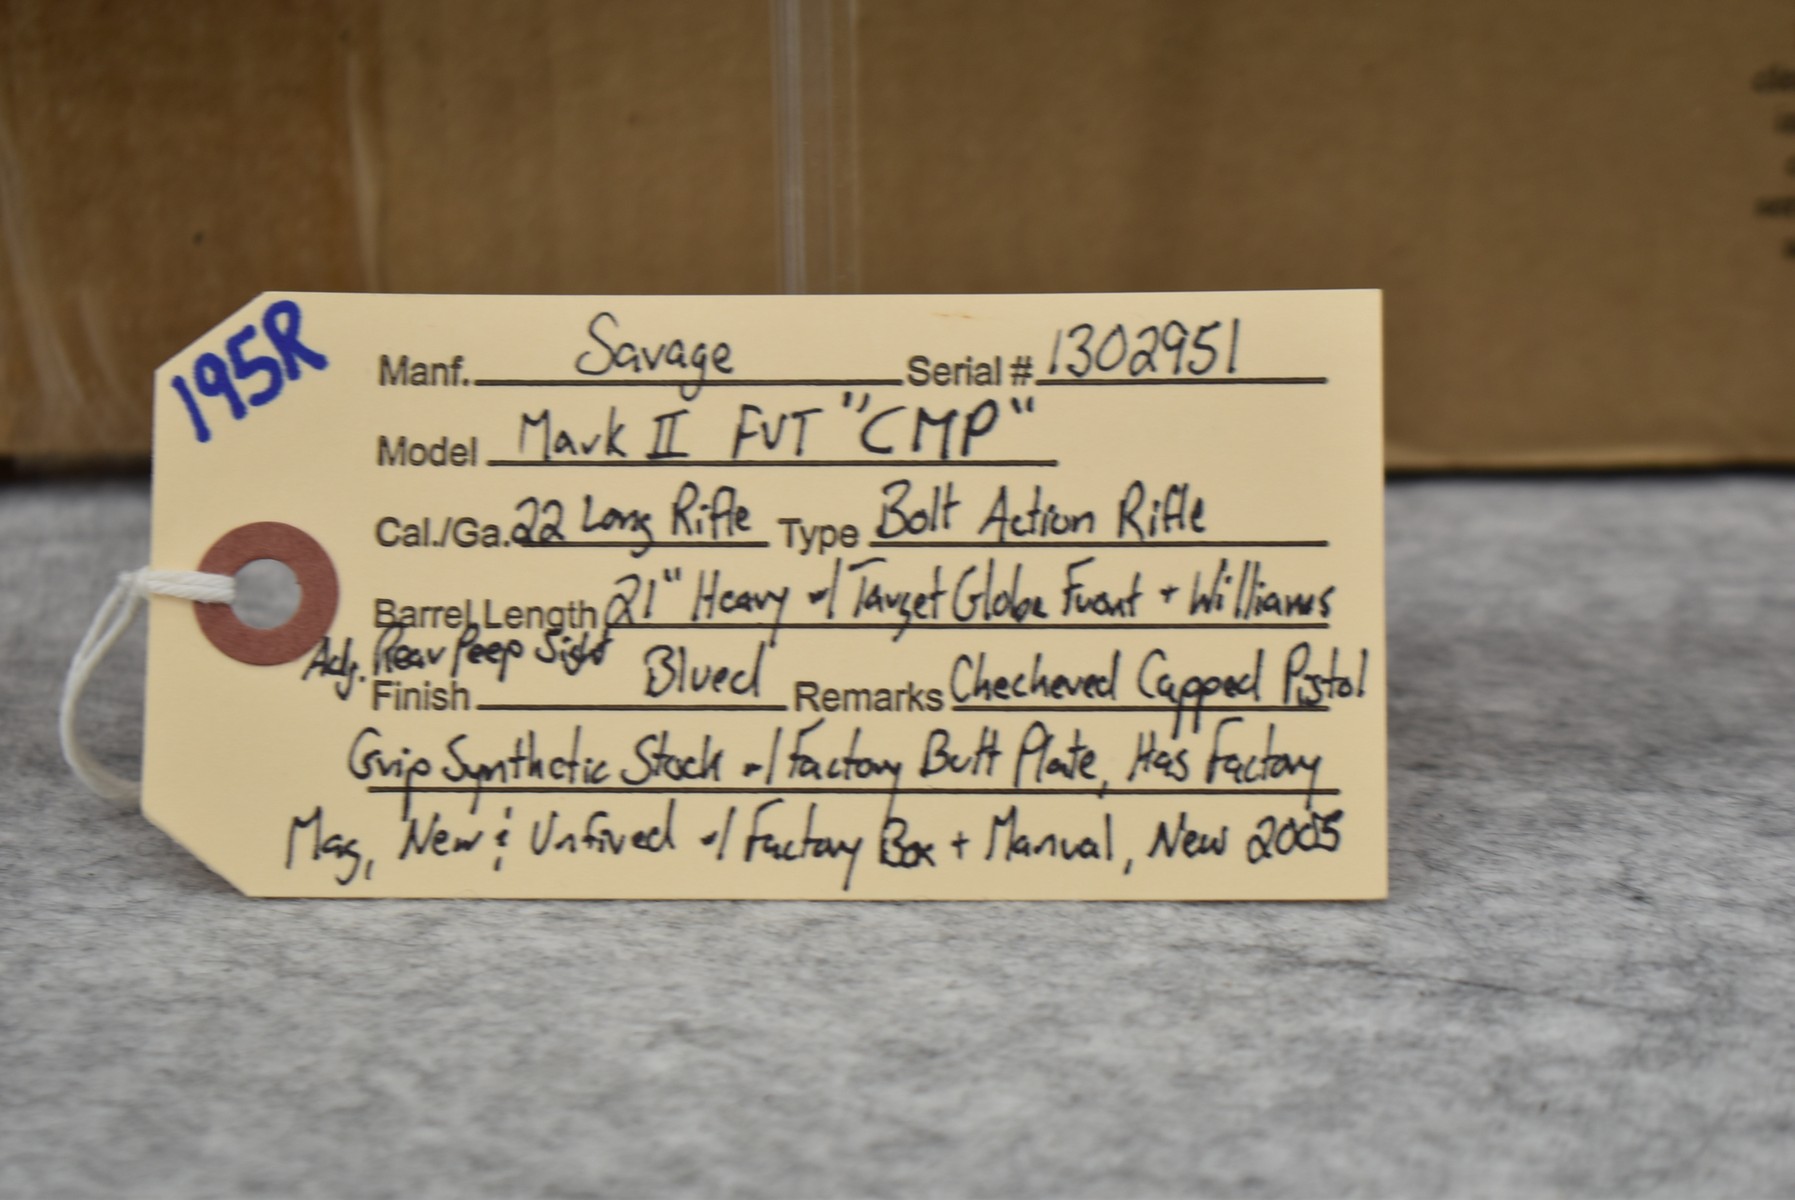 195R
Manf. Savage Serial # 1302951
Model Mark II FVT "CMP"
Cal./Ga. 22 Long Rifle Type Bolt Action Rifle
Barrel Length 21" Heavy w/ Target Globe Front + Williams
Adj. Rear Peep Sight
Finish Blued Remarks Checkered Capped Pistol
Grip Synthetic Stock w/ Factory Butt Plate, Has Factory
Mag, New & Unfired w/ Factory Box + Manual, New 2005